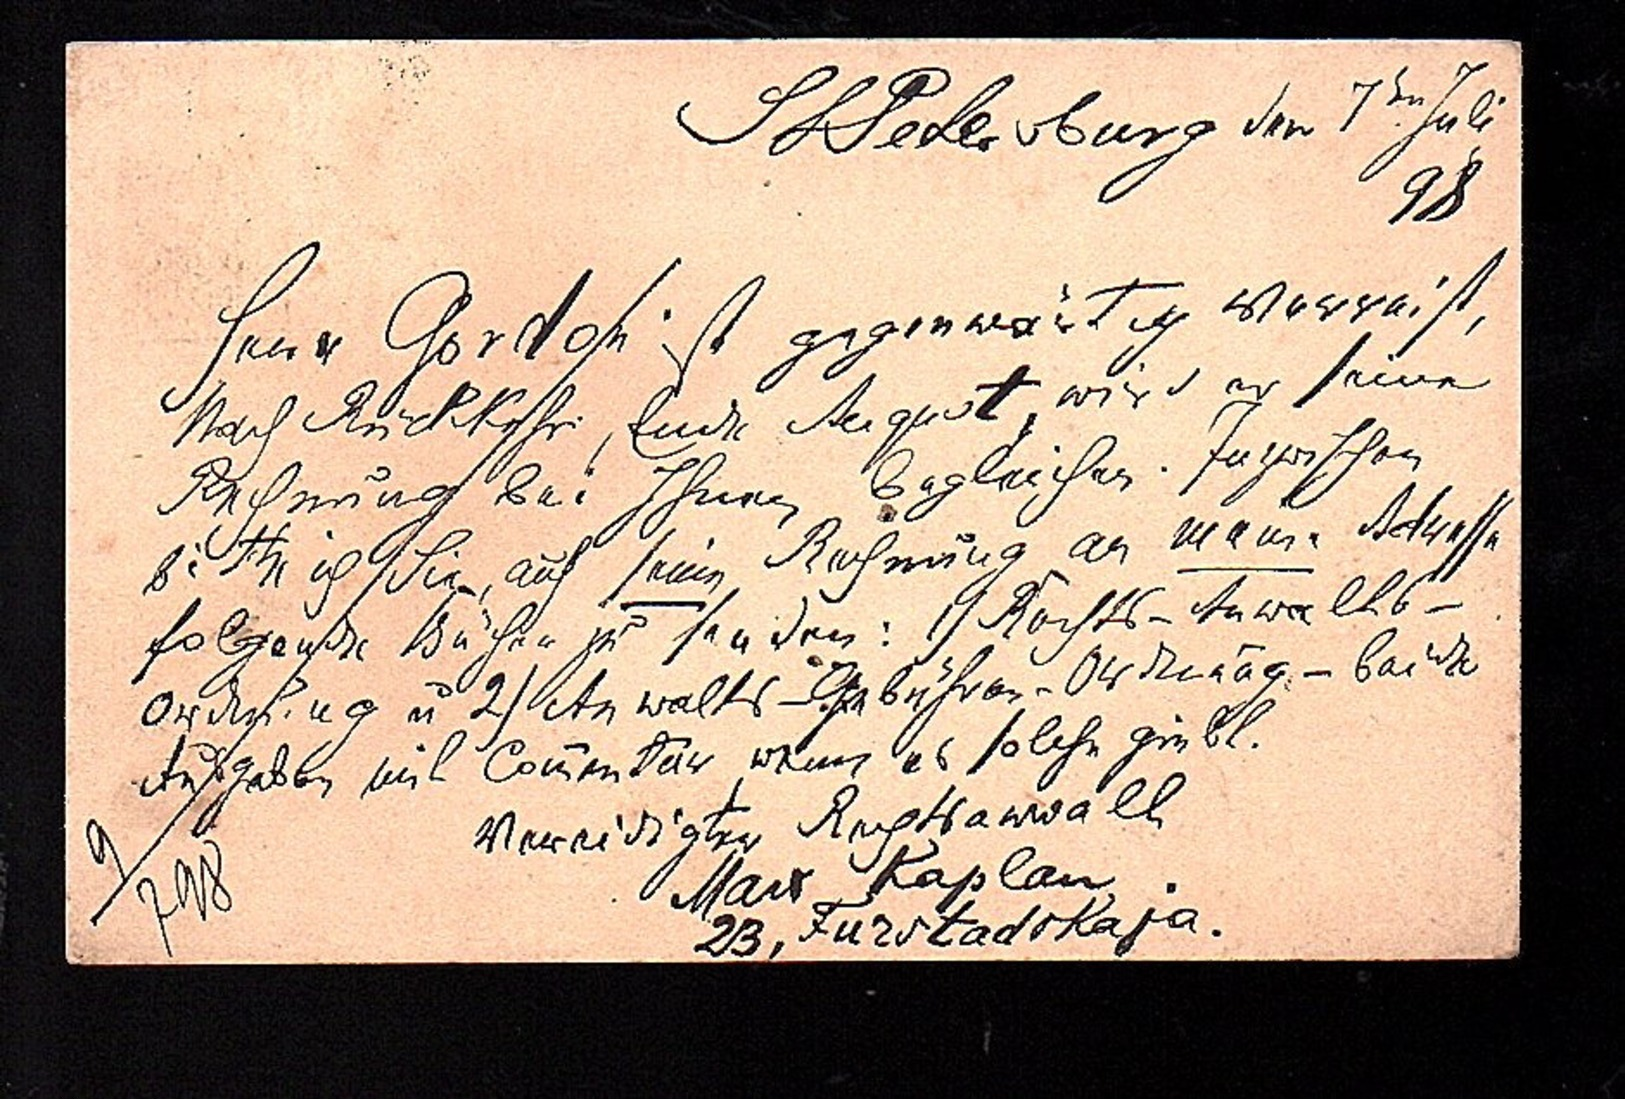 St Petersburg den 7ten Juli
98
Herr Gordon ist gegenwärtig verreist,
Nach Rückkehr, Ende August, wird er seine
Rechnung bei Ihnen begleichen. Inzwischen
bitte ich Sie, auf sein Rechnung an meine Adresse
folgende Bücher zu senden: 1) Rechts-Anwalts-
Ordnung u 2) Anwalts-Gebühren-Ordnung - beide
Ausgaben mit Commentar, wenn es solche giebt.
Vereidigter Rechtsanwalt
Max Kaplan
23, Furstadskaja.
9/7 98